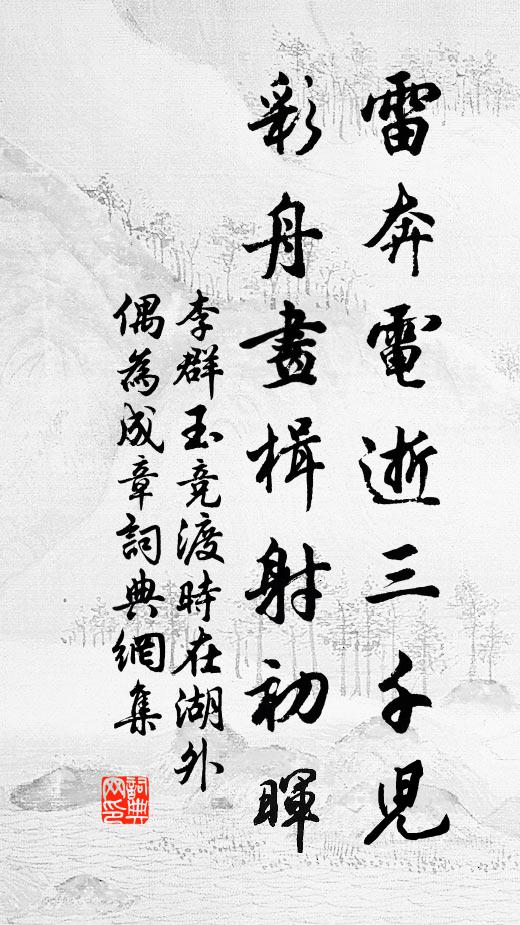 雷奔電逝三千兒
彩舟畫楫射初暉
李群玉競渡時在湖外
偶為成章詞典網集
詞典網印